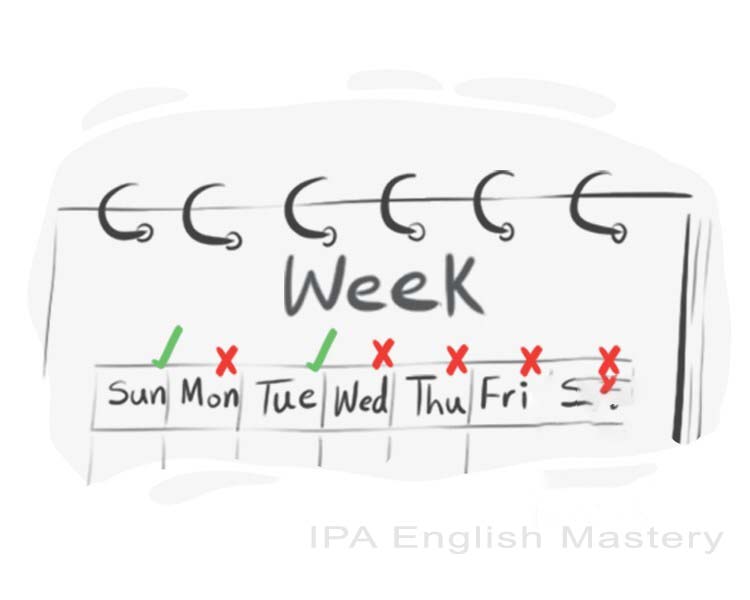 Week
Sun Mon Tue Wed Thu Fri
IPA English Mastery